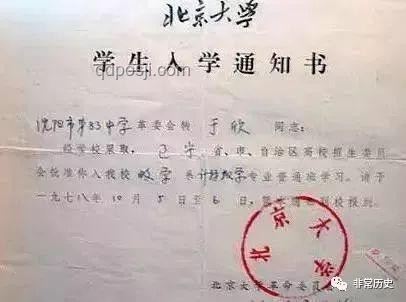 北京大学
学生入学通知书
qdposji.com
沈阳市第83中学革委会转 于欣 同志：
经学校录取，辽宁省、市、自治区高校招生委员
会批准你入我校数学系计算数学专业普通班学习。请于
一九七八年10月5日至6日，到校报到。
北京大学
北京大学革命委员会
非常历史